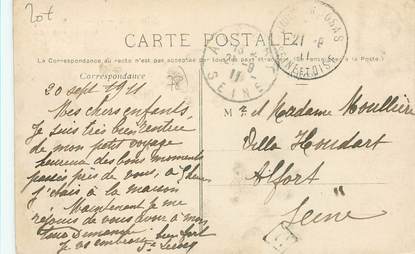 20f
CARTE POSTALE
La Correspondance au recto n'est pas acceptée par tous les pays étrangers. (Se renseigner à la Poste.)
Correspondance
20 sept 1911
Mes chers enfants,
Je suis très bien rentrée
de mon petit voyage
heureux des bons moments
passés près de vous, à 7 heures
j'étais à la maison
Maintenant je me
réjouis de vous avoir à mon
tour Dimanche. bien fort
Je vous embrasse
Mr et Madame Moullière
Villa Houdart
Alfort
Seine
SEINE
21